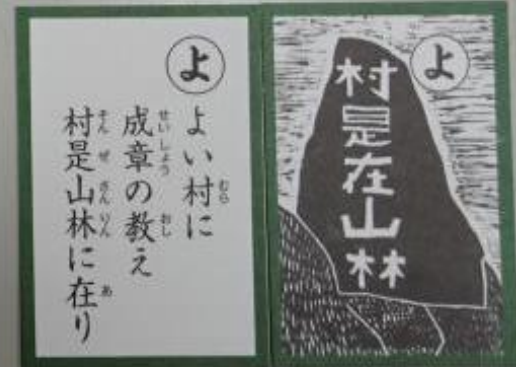 よ
よい村に
成章の教え
村是山林に在り
よ
村是在山林